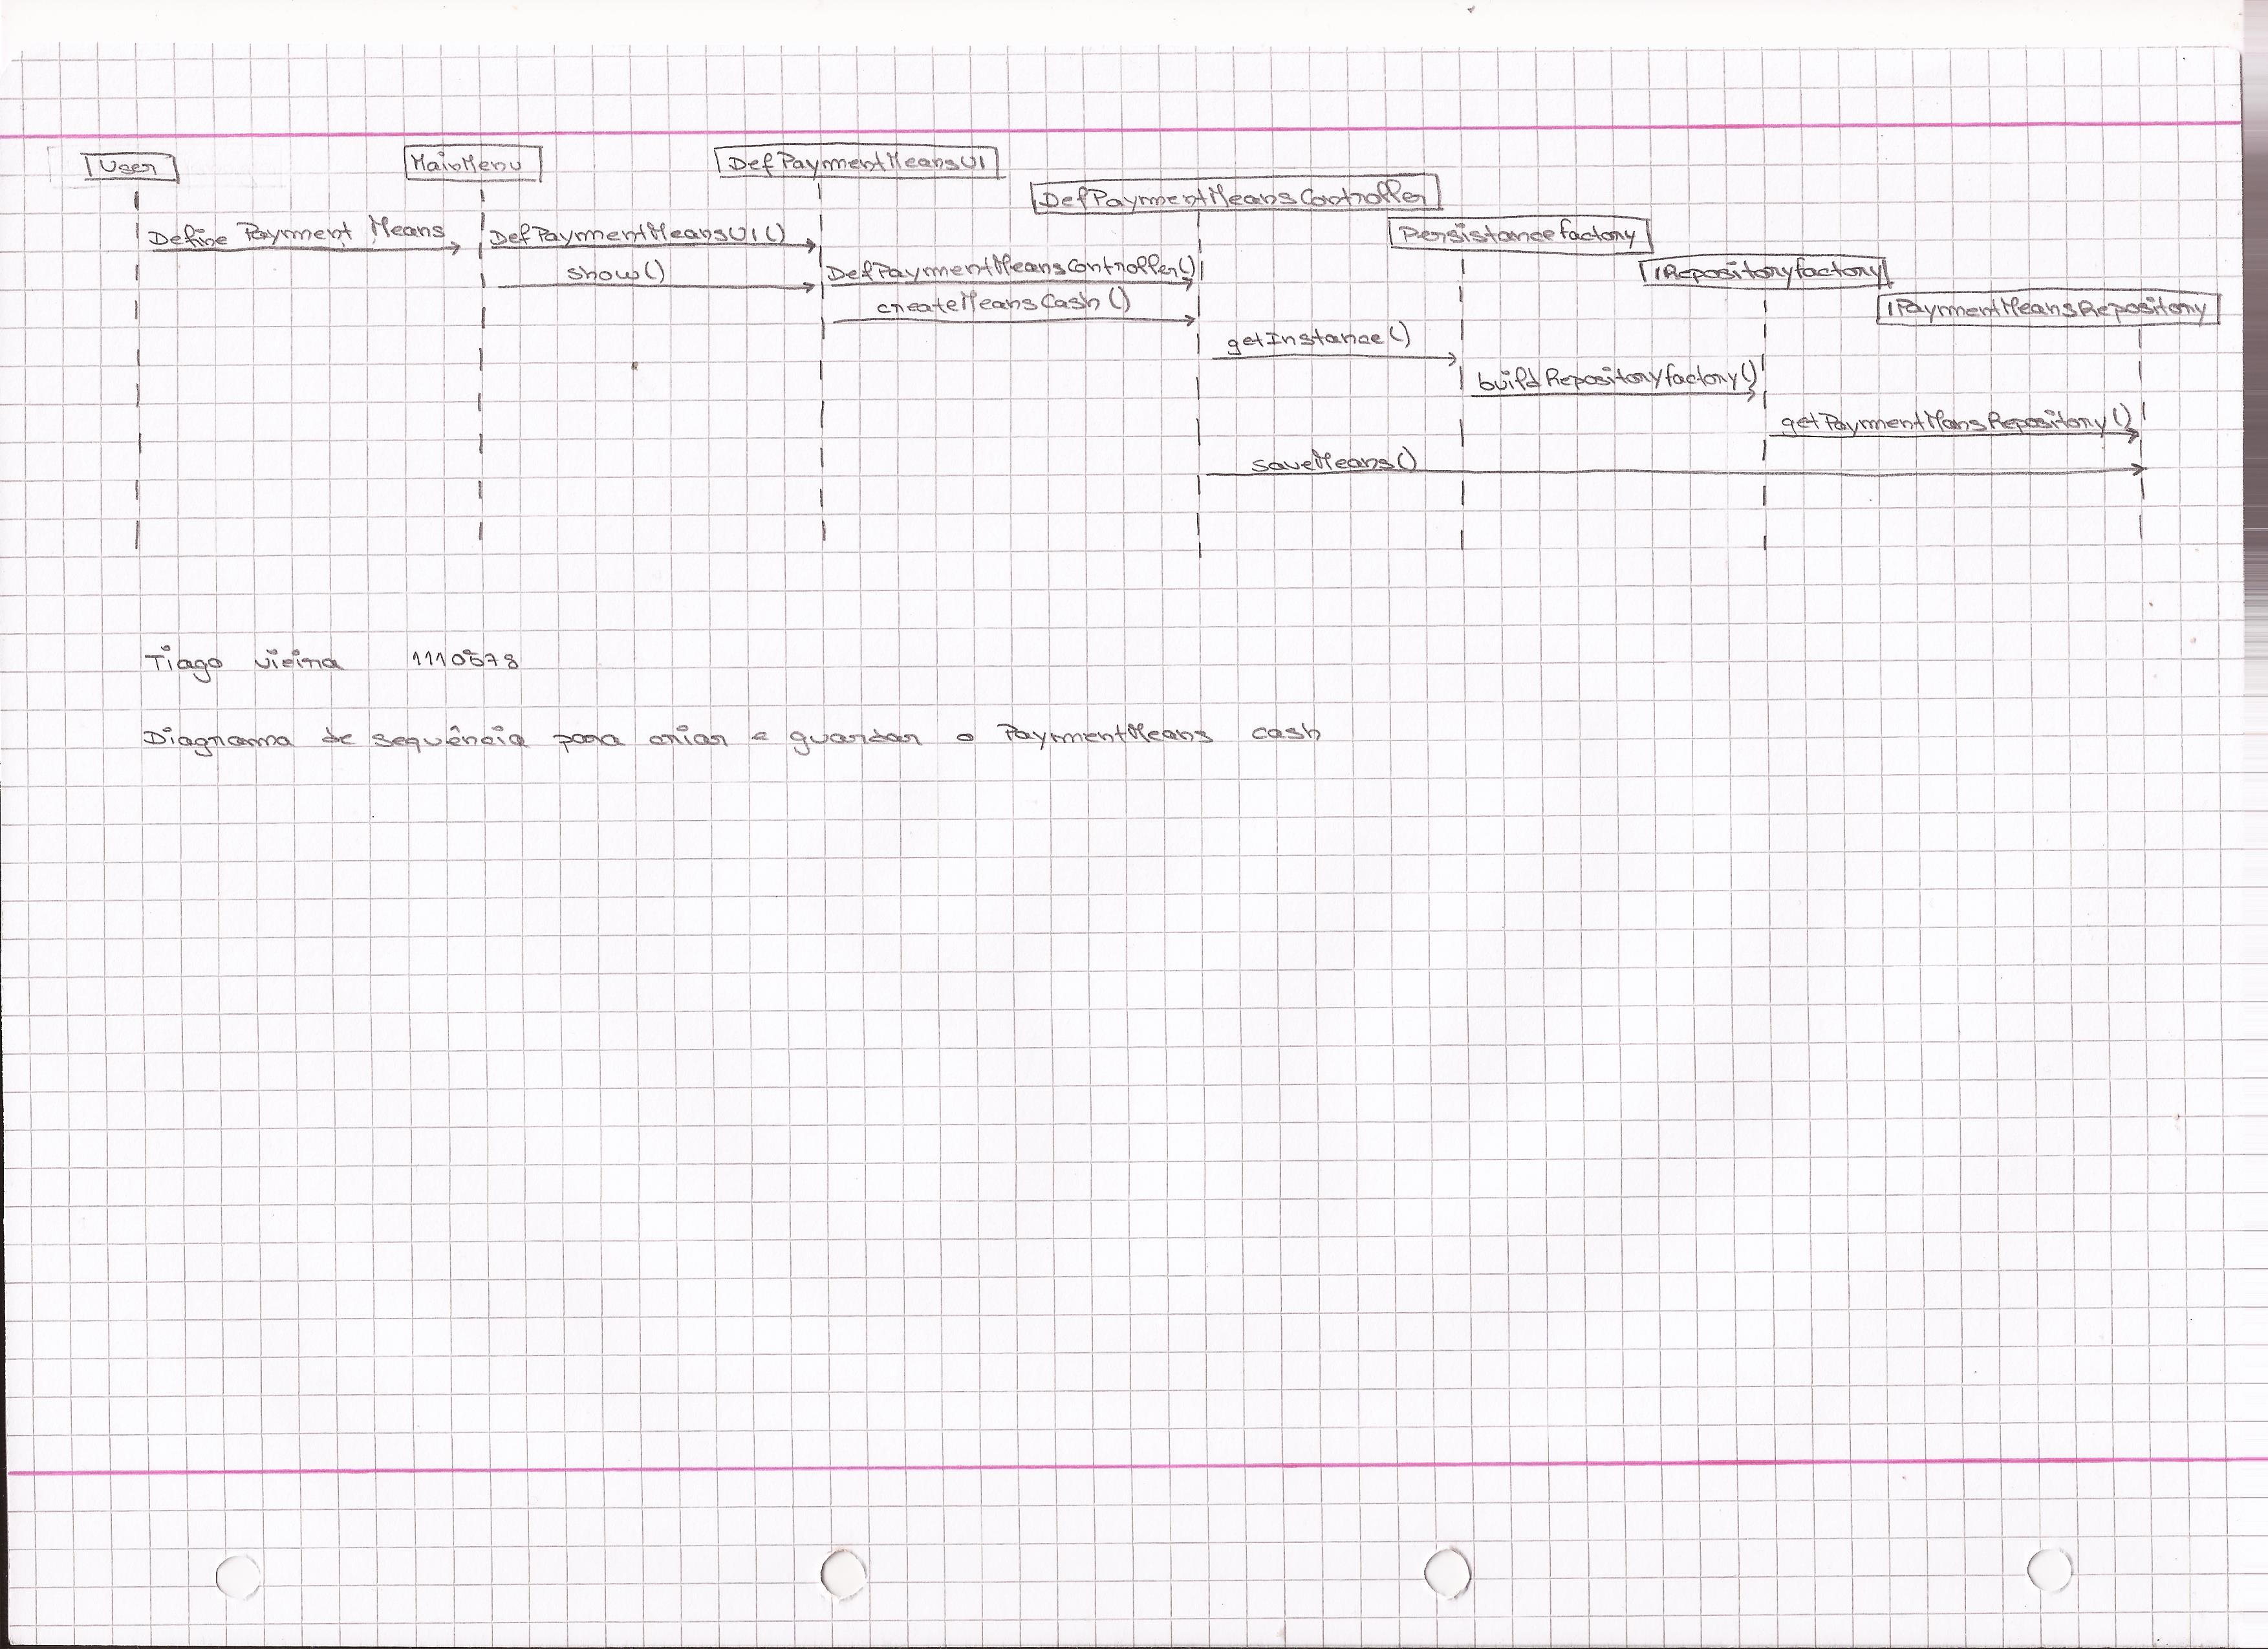 User
MainMenu
DefPaymentMeansUI
DefPaymentMeansController
Persistancefactory
IRepositoryfactory
IPaymentMeansRepository
Define Payment Means
DefPaymentMeansUI()
show()
DefPaymentMeansController()
createMeansCash()
getInstance()
buildRepositoryfactory()
getPaymentMansRepository()
saveMeans()
Tiago Vieira 1110678
Diagrama de sequência para criar e guardar o PaymentMeans cash